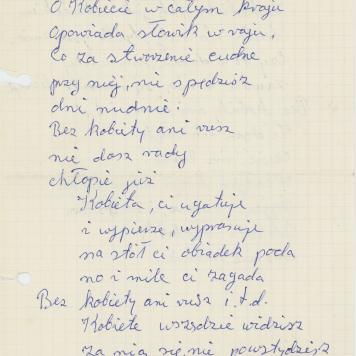 O Kobiecie w całym kraju
opowiada słowik w raju,
Co za stworzenie cudne
przy niej, nie spędzisz
dni nudnie.
Bez kobiety ani rusz
nie dasz rady
chłopie już
Kobieta, ci ugotuje
i wypierze, wyprasuje
na stół ci obiadek poda
no i mile ci zagada
Bez kobiety ani rusz i.t.d.
Kobietę wszędzie widzisz
za nią się, nie powstydzisz